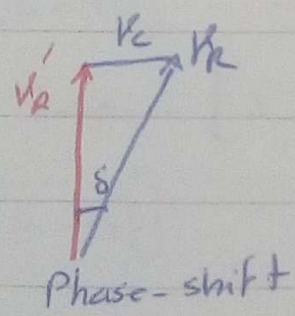 Vc
VR
VR'
δ
Phase-shift